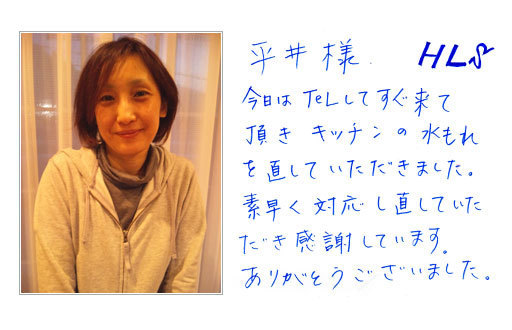 平井様. HLS
今日はTELしてすぐ来て
頂き キッチンの水もれ
を直していただきました。
素早く対応し直していた
だき感謝しています。
ありがとうございました。